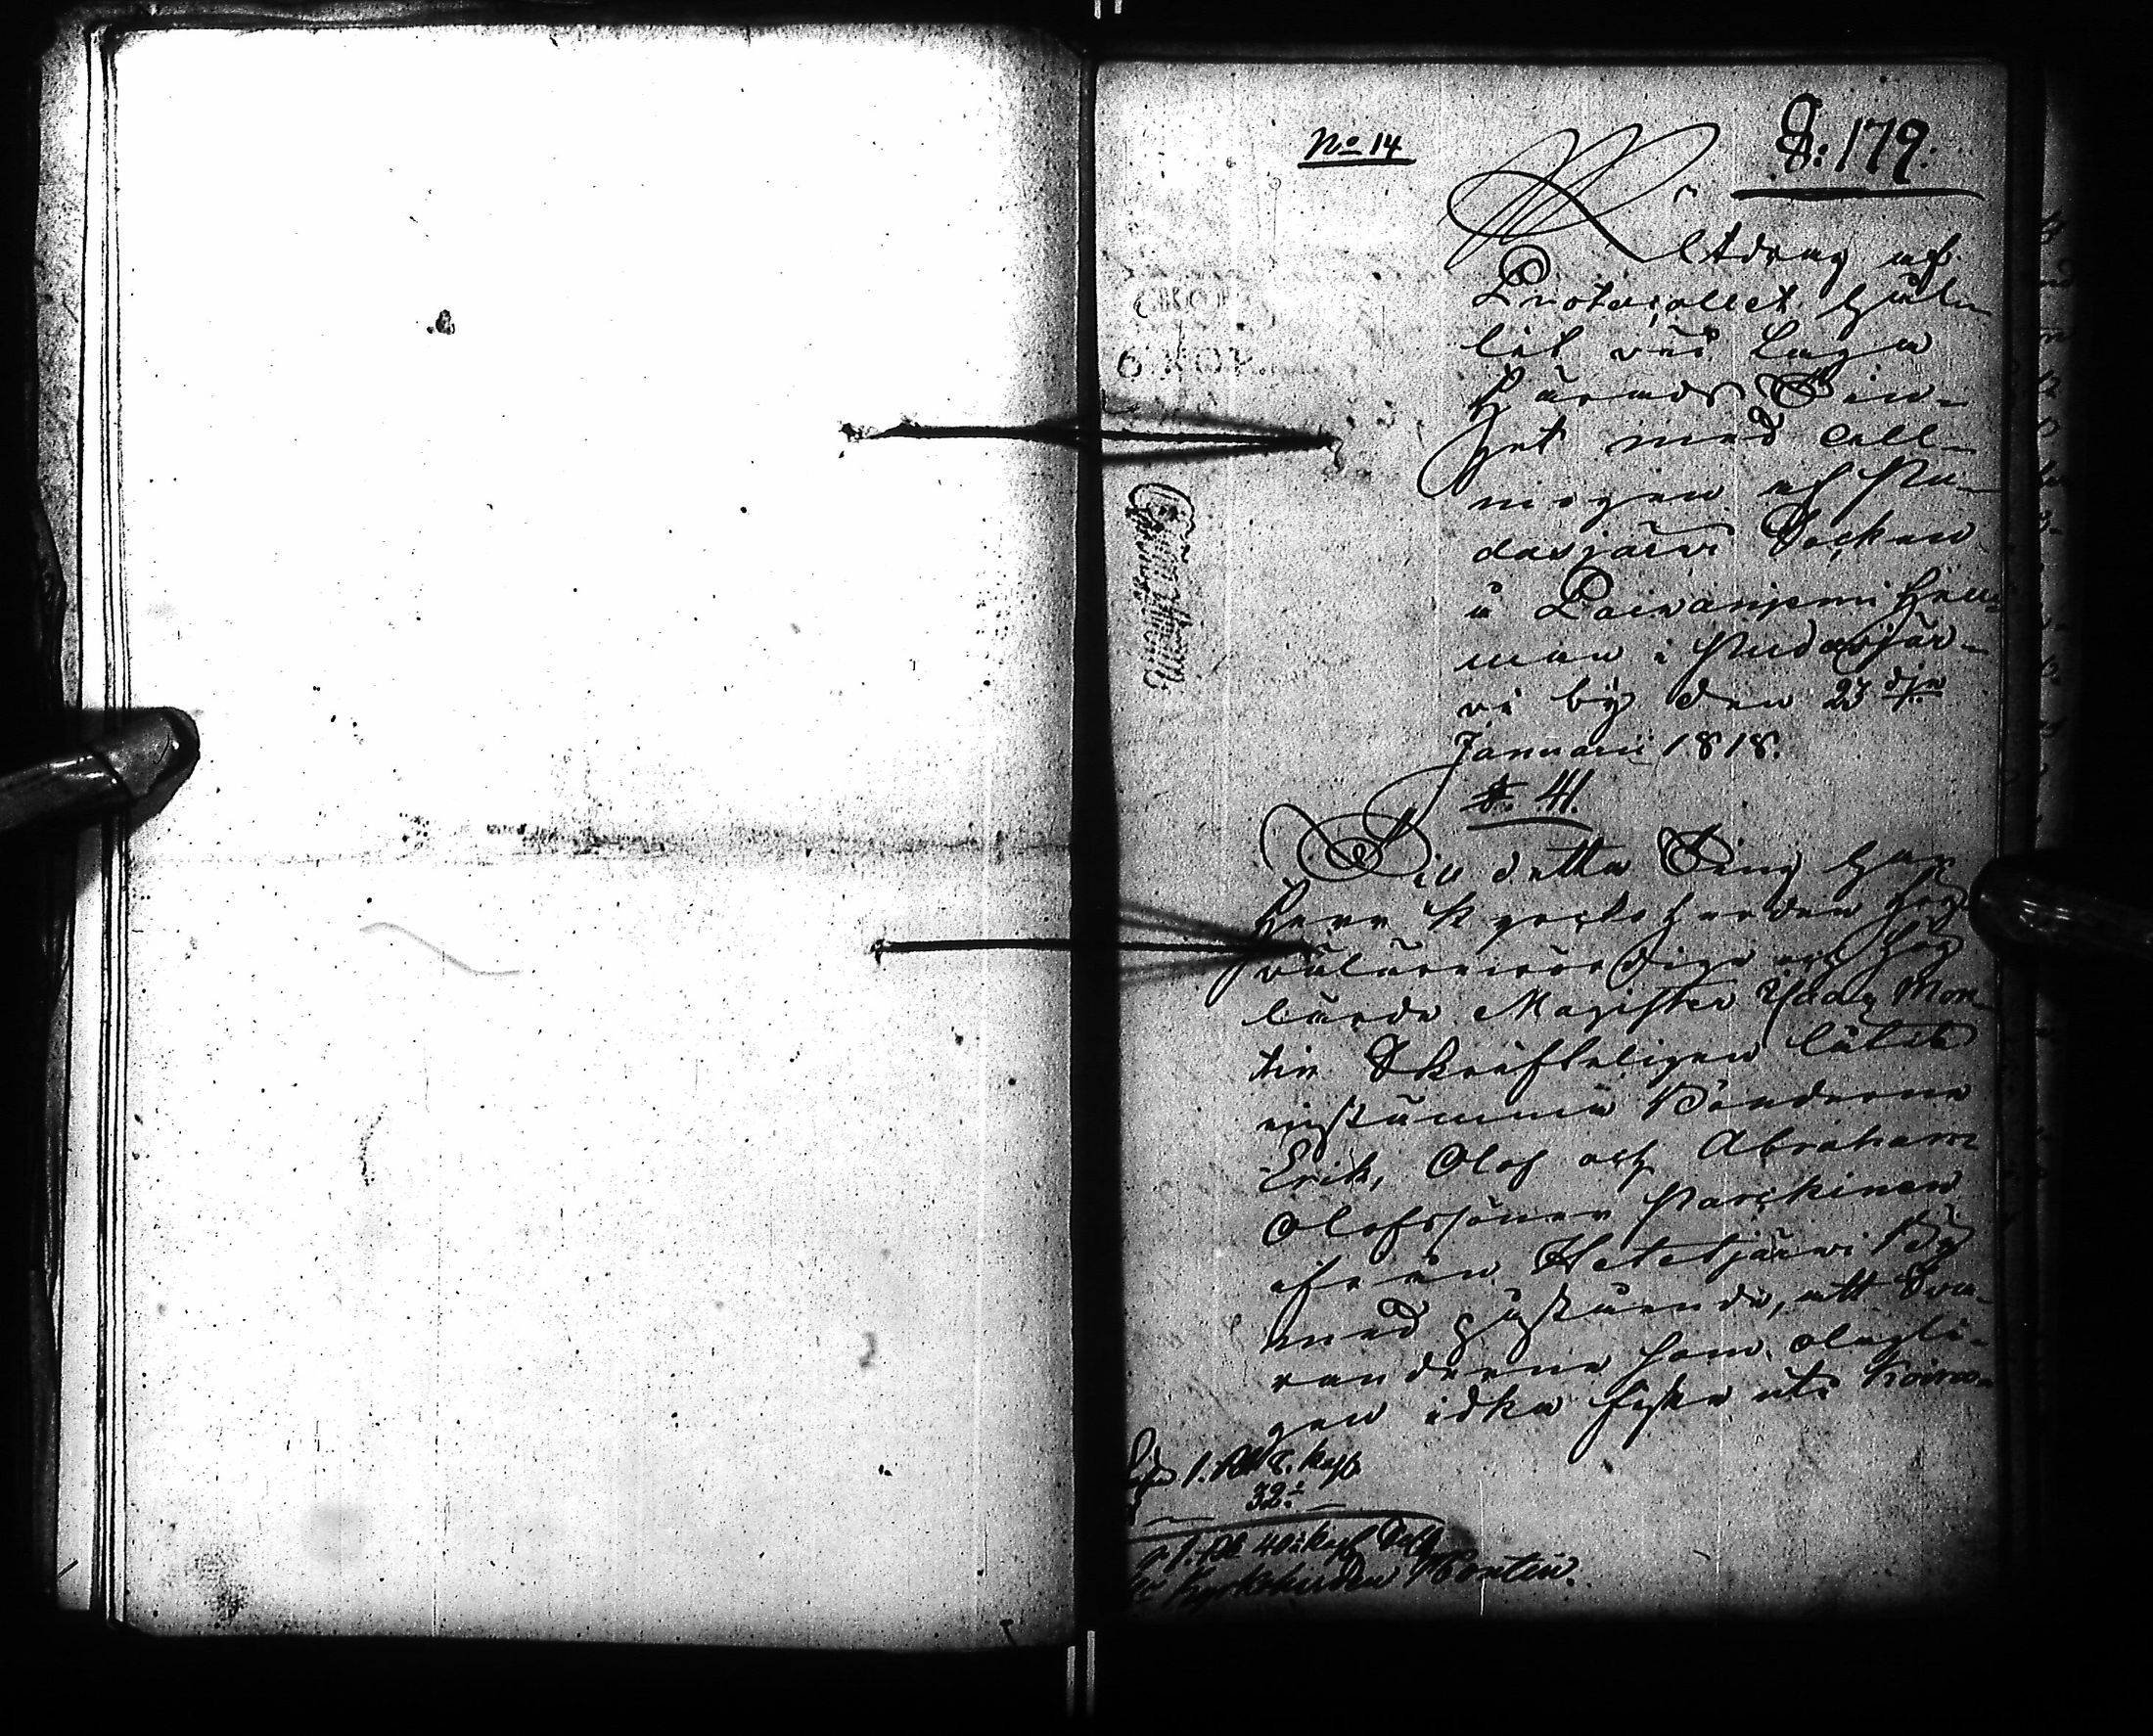 No 14
S: 179.
Utdrag af
Protocollet hål-
lit vid Laga
Härads Tin-
get med All-
mogen af Pu-
dasjärvi Socken
å Paivaniemi Hem-
man i Pudasjär-
vi by den 23 dje
Januarii 1818.
§. 41.
Till detta Ting har
Herr Kyrkoherden Hög
välärevördige och Hög
lärde Magister Isaac Mon-
tin Skrifteligen låtit
instämma Bönderne
Erik, Olof och Abraham
Olofssöner Parkinen
ifrån Hetejärvi By
med påstående, att Sva-
randerne som olagli-
gen idka fiske uti
1. R. S. Kop.
32.
1. Rub 40 Kop Solf
Kyrkoherden Montin.